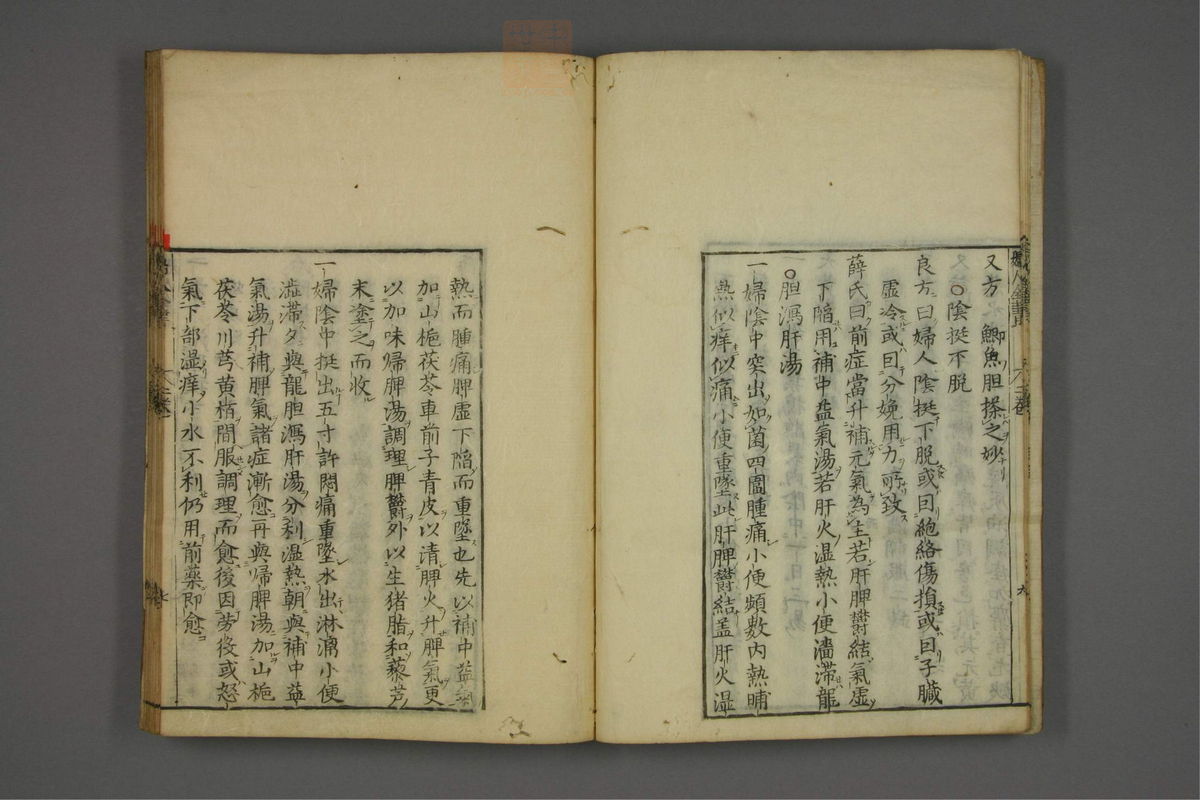 又方 鯽魚胆搽之妙
○陰挺不脱
良方曰婦人陰挺下脱或曰胞絡傷損或曰子臓
虚冷或曰分娩用力所致
薛氏曰前症當升補元氣為主若肝脾欝結氣虚
下陥用補中益氣湯若肝火湿熱小便濇滞龍
胆瀉肝湯
一婦陰中突出如菌四圍腫痛小便頻数内熱晡
熱似痒似痛小便重墜此肝脾欝結盖肝火湿
熱而腫痛脾虚下陥而重墜也先以補中益氣
加山梔茯苓車前子青皮以清脾火升脾氣更
以加味帰脾湯調理脾欝外以生猪脂和藜芦
末塗之而收
一婦陰中挺出五寸許悶痛重墜水出淋漓小便
澁滞夕與龍胆瀉肝湯分利湿熱朝與補中益
氣湯升補脾氣諸症漸愈再與帰脾湯加山梔
茯苓川芎黄栢間服調理而愈後因労役或怒
氣下部湿痒小水不利仍用前薬即愈